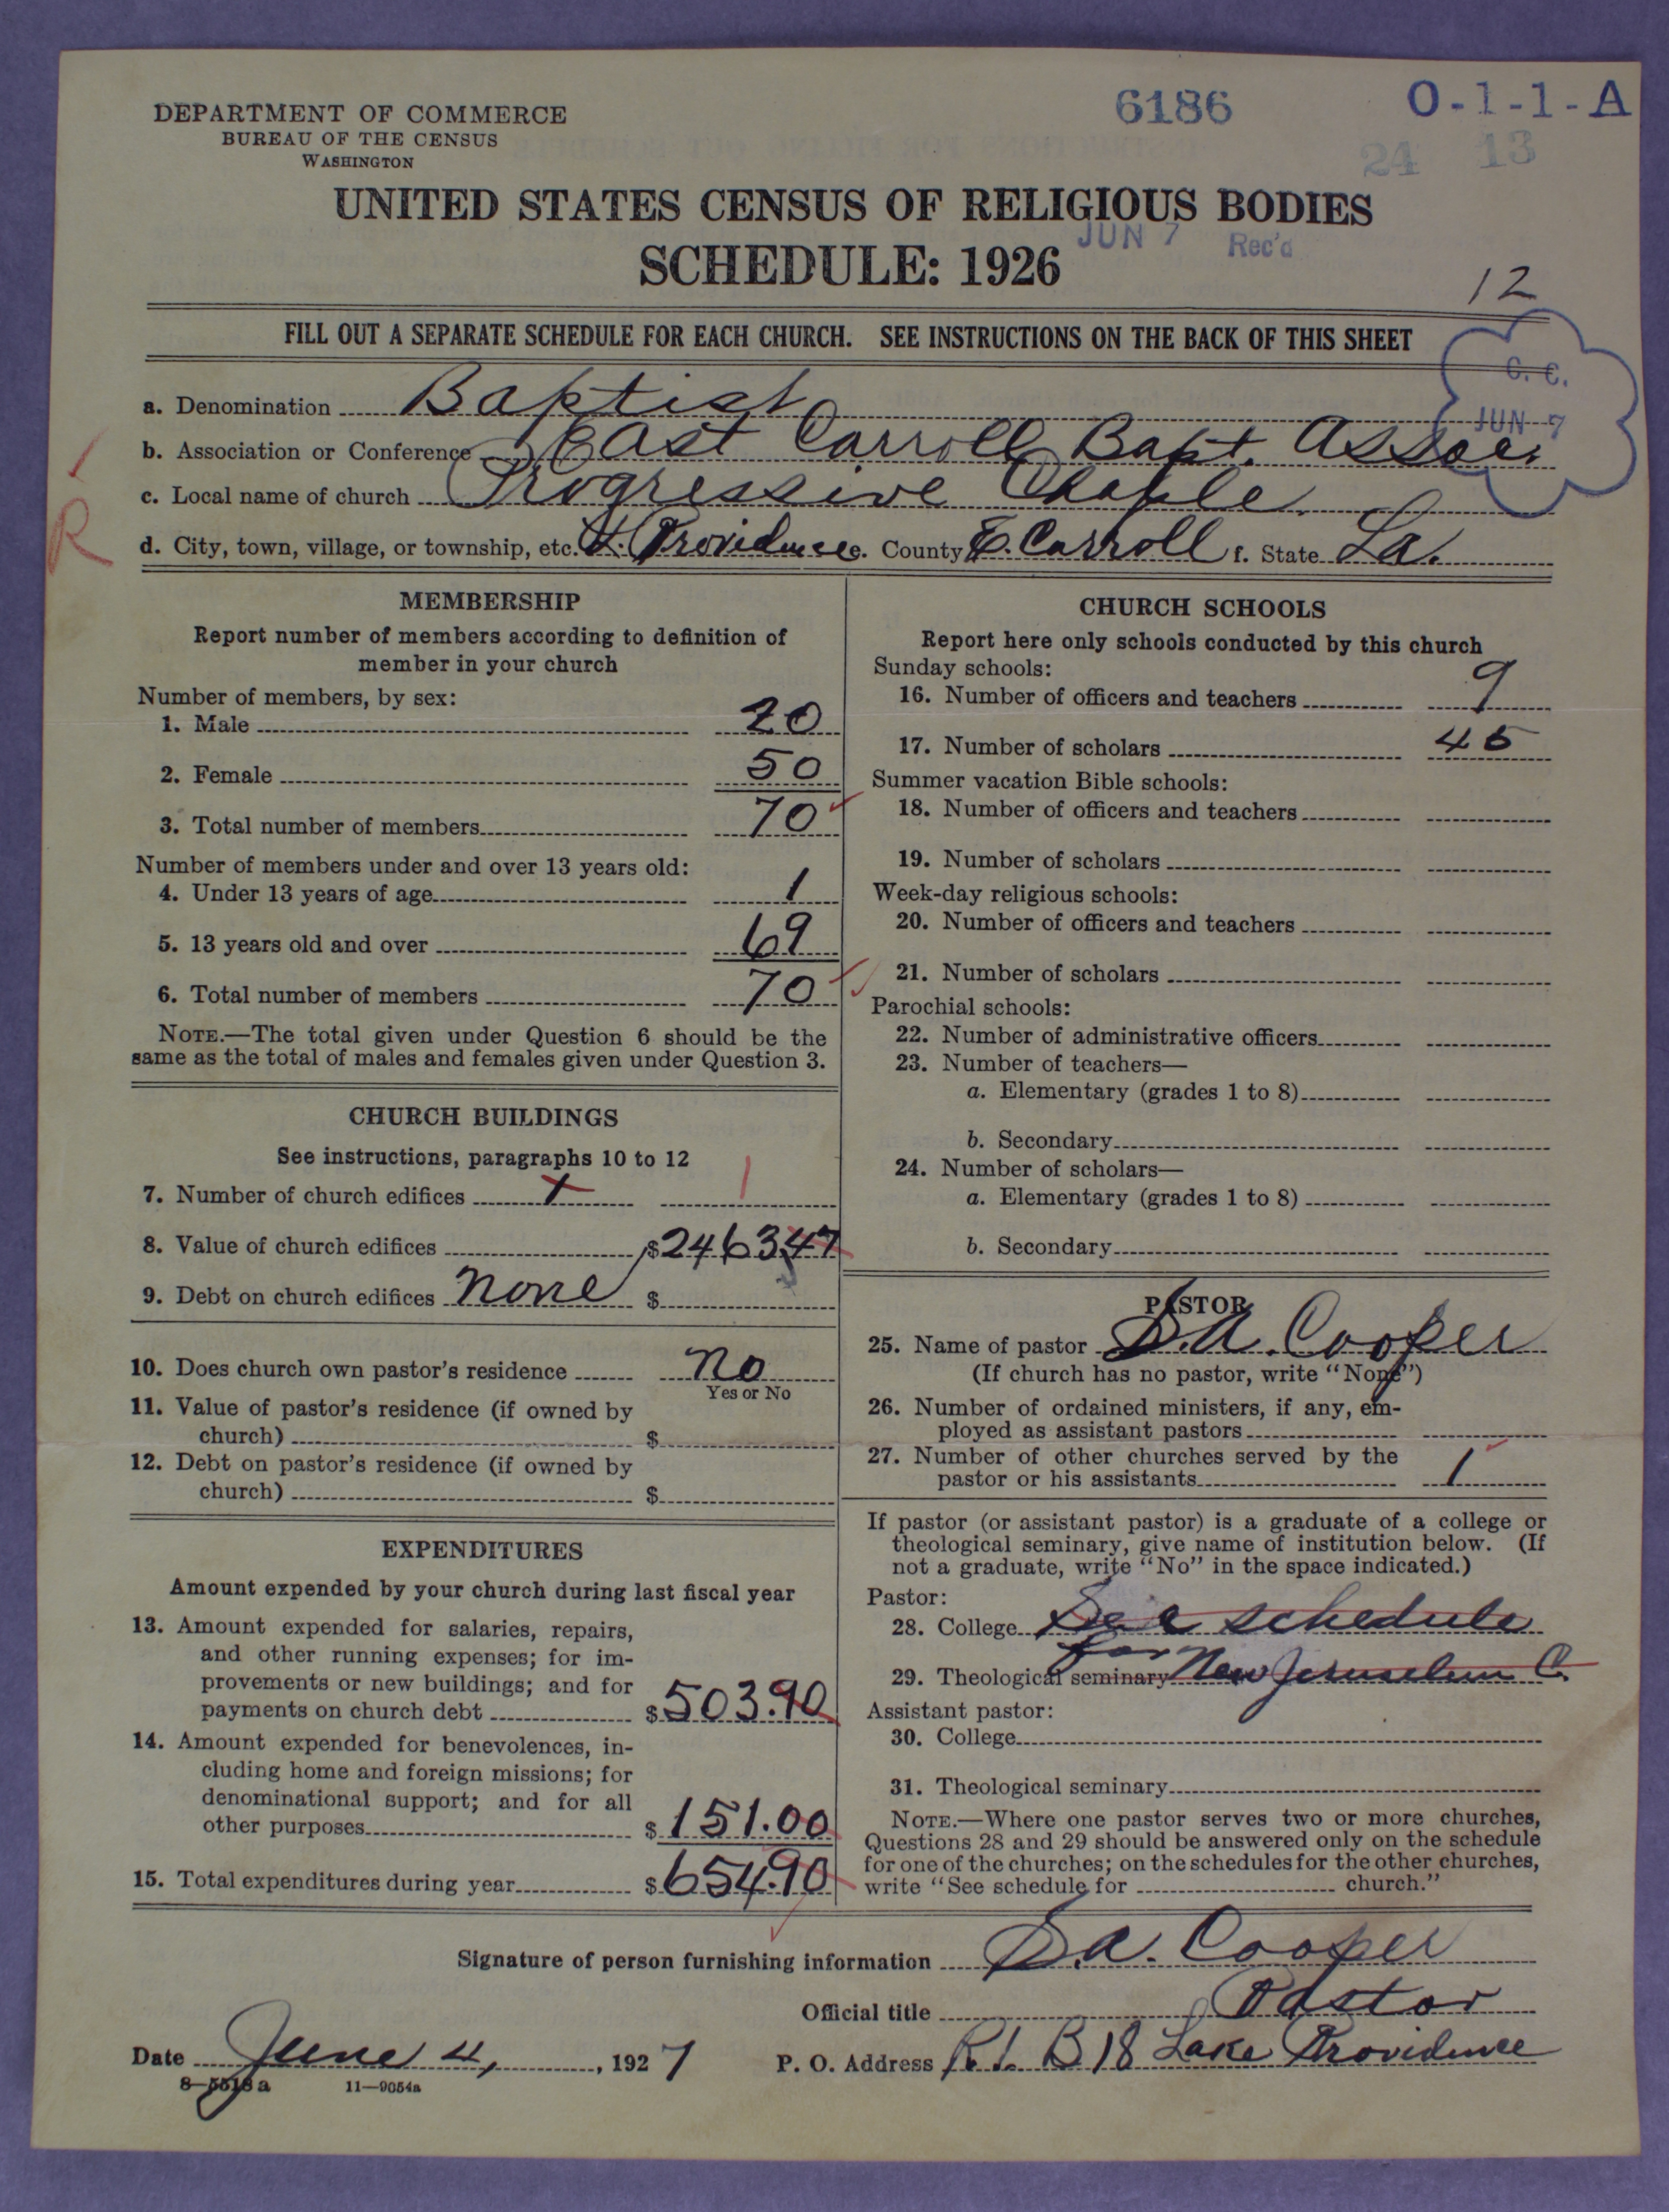 6186
O-1-1-A
24 13
DEPARTMENT OF COMMERCE
BUREAU OF THE CENSUS
WASHINGTON
UNITED STATES CENSUS OF RELIGIOUS BODIES
JUN 7 Rec'd
SCHEDULE: 1926
12
FILL OUT A SEPARATE SCHEDULE FOR EACH CHURCH. SEE INSTRUCTIONS ON THE BACK OF THIS SHEET
C. C.
JUN 7
R
a. Denomination Baptist
b. Association or Conference East Carroll Bapt. Assoc.
c. Local name of church Progressive Chaple
d. City, town, village, or township, etc. L. Providence e. County E. Carroll f. State La.
MEMBERSHIP
Report number of members according to definition of
member in your church
Number of members, by sex:
1. Male 20
2. Female 50
3. Total number of members 70
Number of members under and over 13 years old:
4. Under 13 years of age 1
5. 13 years old and over 69
6. Total number of members 70
NOTE.—The total given under Question 6 should be the
same as the total of males and females given under Question 3.
CHURCH BUILDINGS
See instructions, paragraphs 10 to 12
7. Number of church edifices 1 1
8. Value of church edifices $2463.47
9. Debt on church edifices None $
10. Does church own pastor's residence No
Yes or No
11. Value of pastor's residence (if owned by
church) $
12. Debt on pastor's residence (if owned by
church) $
EXPENDITURES
Amount expended by your church during last fiscal year
13. Amount expended for salaries, repairs,
and other running expenses; for im-
provements or new buildings; and for
payments on church debt $503.90
14. Amount expended for benevolences, in-
cluding home and foreign missions; for
denominational support; and for all
other purposes $151.00
15. Total expenditures during year $654.90
CHURCH SCHOOLS
Report here only schools conducted by this church
Sunday schools:
16. Number of officers and teachers 9
17. Number of scholars 45
Summer vacation Bible schools:
18. Number of officers and teachers
19. Number of scholars
Week-day religious schools:
20. Number of officers and teachers
21. Number of scholars
Parochial schools:
22. Number of administrative officers
23. Number of teachers—
a. Elementary (grades 1 to 8)
b. Secondary
24. Number of scholars—
a. Elementary (grades 1 to 8)
b. Secondary
PASTOR
25. Name of pastor S.A. Cooper
(If church has no pastor, write "None")
26. Number of ordained ministers, if any, em-
ployed as assistant pastors
27. Number of other churches served by the
pastor or his assistants 1
If pastor (or assistant pastor) is a graduate of a college or
theological seminary, give name of institution below. (If
not a graduate, write "No" in the space indicated.)
Pastor:
28. College See schedule
for
29. Theological seminary New Jeruselum C.
Assistant pastor:
30. College
31. Theological seminary
NOTE.—Where one pastor serves two or more churches,
Questions 28 and 29 should be answered only on the schedule
for one of the churches; on the schedules for the other churches,
write "See schedule for church."
Signature of person furnishing information S.A. Cooper
Official title Pastor
Date June 4, 1927
P. O. Address R.1. B 18 Lake Providence
8-5518 a 11-9054a